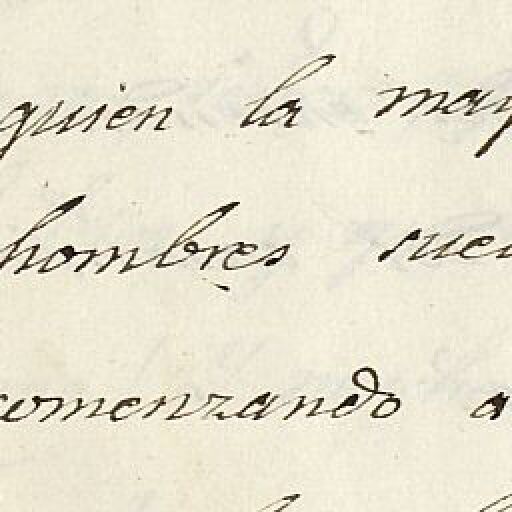 quien la may
hombres sue
comenzando a